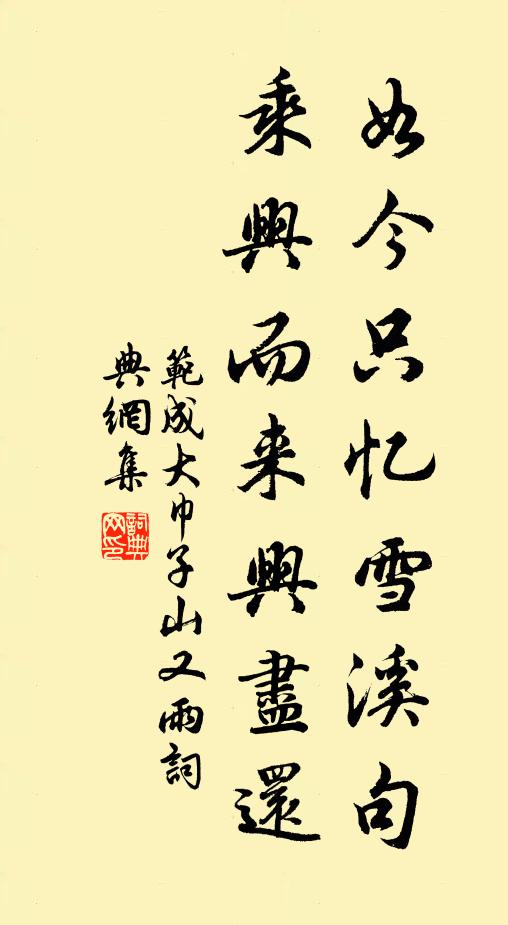 如今只忆雪溪句
乘興而来興盡還
範成大巾子山又雨詞
典網集
詞典
网印